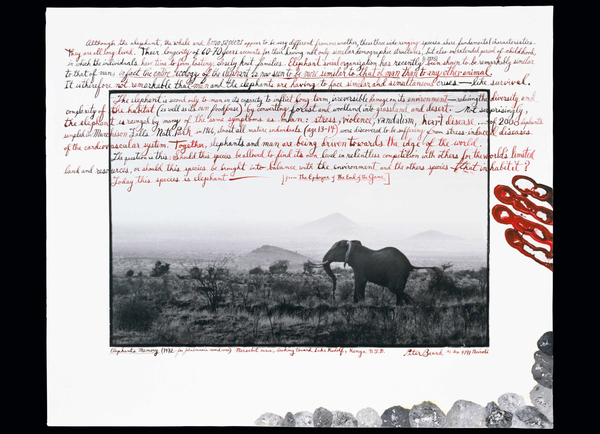 Although the elephant, the whale and homo sapiens appear to be very different from one another, these three wide ranging species share fundamental characteristics.
They are all long-lived. Their longevity of 60-70 years accounts for their having not only similar demographic structures, but also extended periods of childhood,
in which the individuals have time to form lasting, closely knit families. Elephant social organization has recently been shown to be remarkably similar
to that of man: in fact the entire ecology of the elephant is now seen to be more similar to that of man than to any other animal.
It is therefore not remarkable that man and the elephants are having to face similar and simultaneous crises — like survival.
The elephant is second only to man in its capacity to inflict long-term, irreversible damage on its environment — reducing the diversity and
complexity of the habitat (as well as its own foodpens) by converting forest and woodland into grassland and desert. Not surprisingly,
the elephant is ravaged by many of the same symptoms as man: stress, violence, vandalism, heart disease. — of 2000 elephants
sampled in Murchison Falls Natl Park in 1966, about all mature individuals (age 13-14) was discovered to be suffering from stress-induced diseases
of the cardiovascular system. Together, elephants and man are being driven towards the edge of the world.
The question is this: Should this species be allowed to find its own level in relentless competition with others for the world's limited
land and resources, or should this species be brought into balance with the environment and the others species that inhabit it?
Today this species is elephant — [from The Epilogue of The End of the Game]
Elephant's Memory (1972 Marsabit area, looking toward Lake Rudolf, Kenya N.F.D. Peter Beard Nairobi